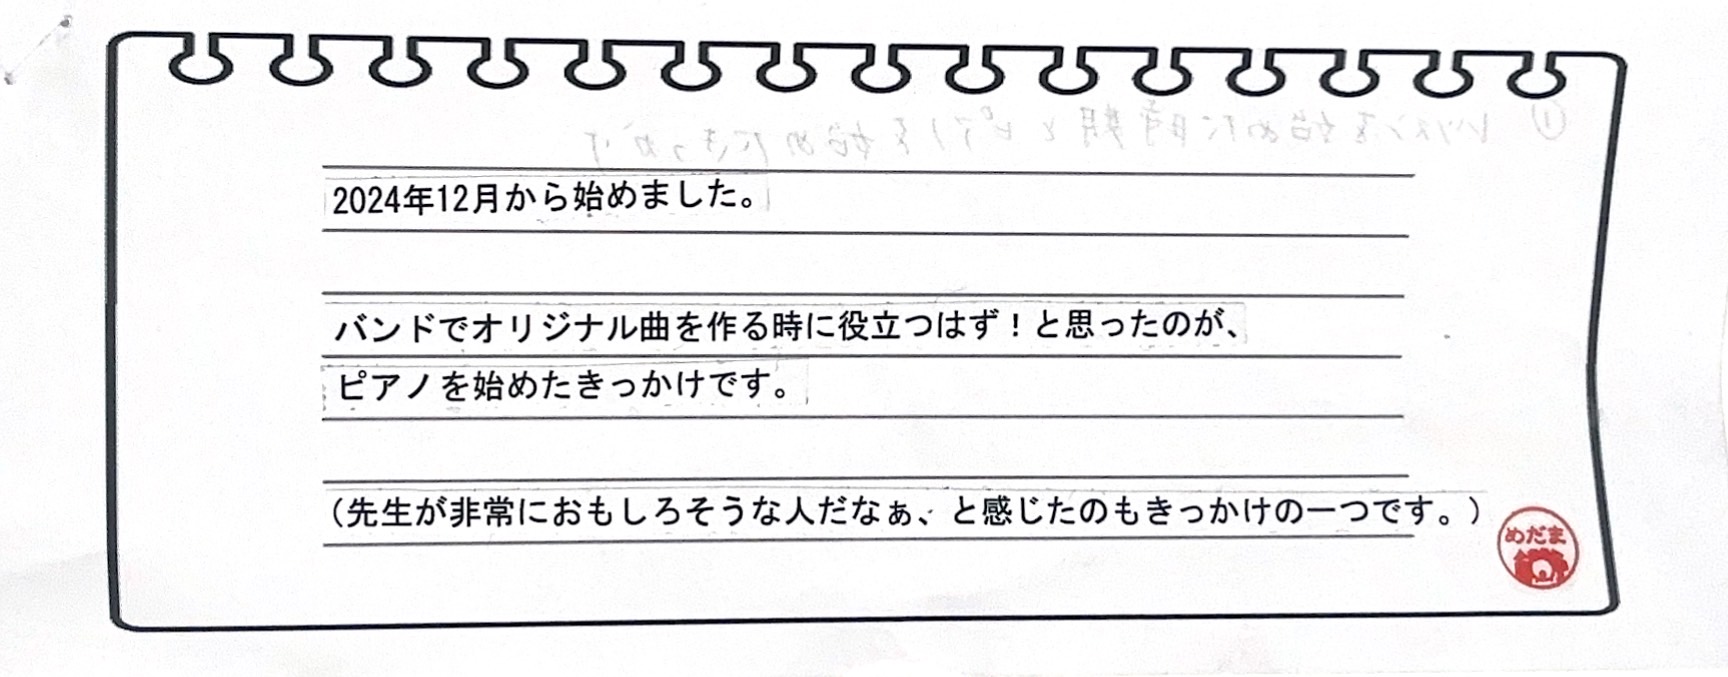 ① レッスンを始めた時期とピアノを始めたきっかけ
2024年12月から始めました。
バンドでオリジナル曲を作る時に役立つはず！と思ったのが、
ピアノを始めたきっかけです。
（先生が非常におもしろそうな人だなぁ、と感じたのもきっかけの一つです。）
めだま